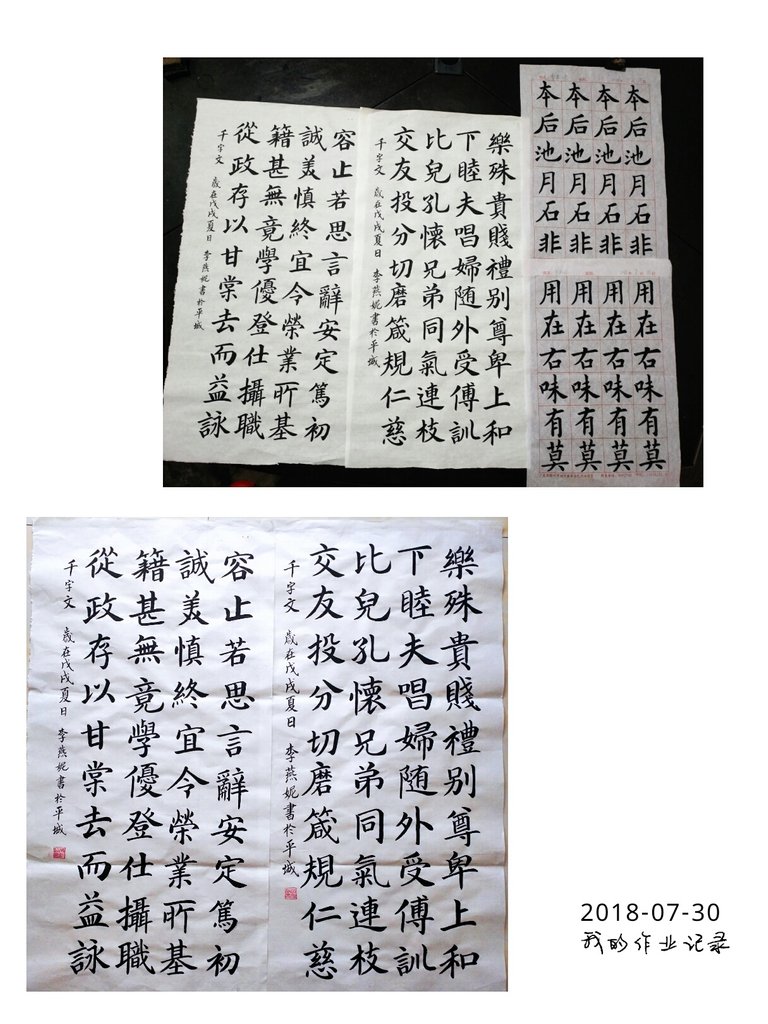 本后池月石非
本后池月石非
本后池月石非
本后池月石非
用在右味有莫
用在右味有莫
用在右味有莫
用在右味有莫
樂殊貴賤禮别尊卑上和
下睦夫唱婦随外受傅訓
比兒孔懷兄弟同氣連枝
交友投分切磨箴規仁慈
千字文 歲在戊戌夏日 李燕妮書於平城
容止若思言辭安定篤初
誠美慎終宜令榮業所基
籍甚無竟學優登仕攝職
從政存以甘棠去而益詠
千字文 歲在戊戌夏日 李燕妮書於平城
樂殊貴賤禮别尊卑上和
下睦夫唱婦随外受傅訓
比兒孔懷兄弟同氣連枝
交友投分切磨箴規仁慈
千字文 歲在戊戌夏日 李燕妮書於平城
容止若思言辭安定篤初
誠美慎終宜令榮業所基
籍甚無竟學優登仕攝職
從政存以甘棠去而益詠
千字文 歲在戊戌夏日 李燕妮書於平城
2018-07-30
我的作业记录